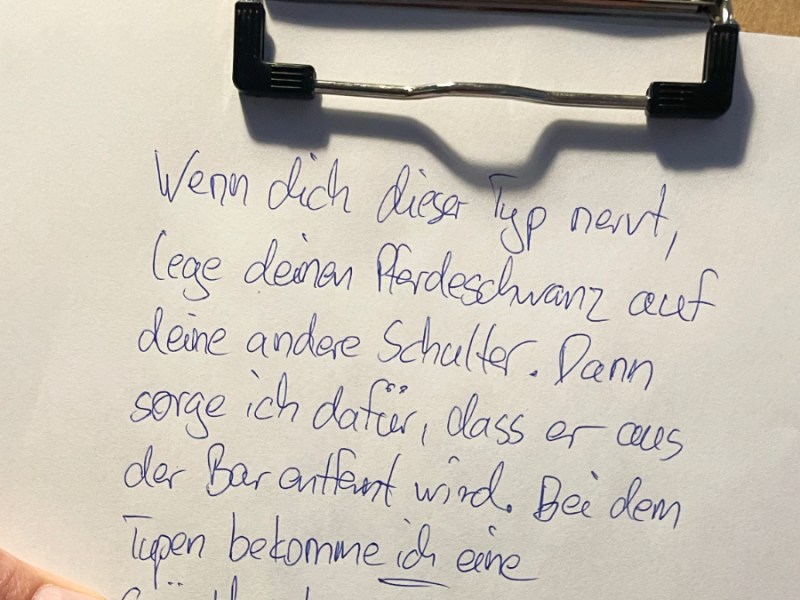 Wenn dich dieser Typ nervt,
lege deinen Pferdeschwanz auf
deine andere Schulter. Dann
sorge ich dafür, dass er aus
der Bar entfernt wird. Bei dem
Typen bekomme ich eine